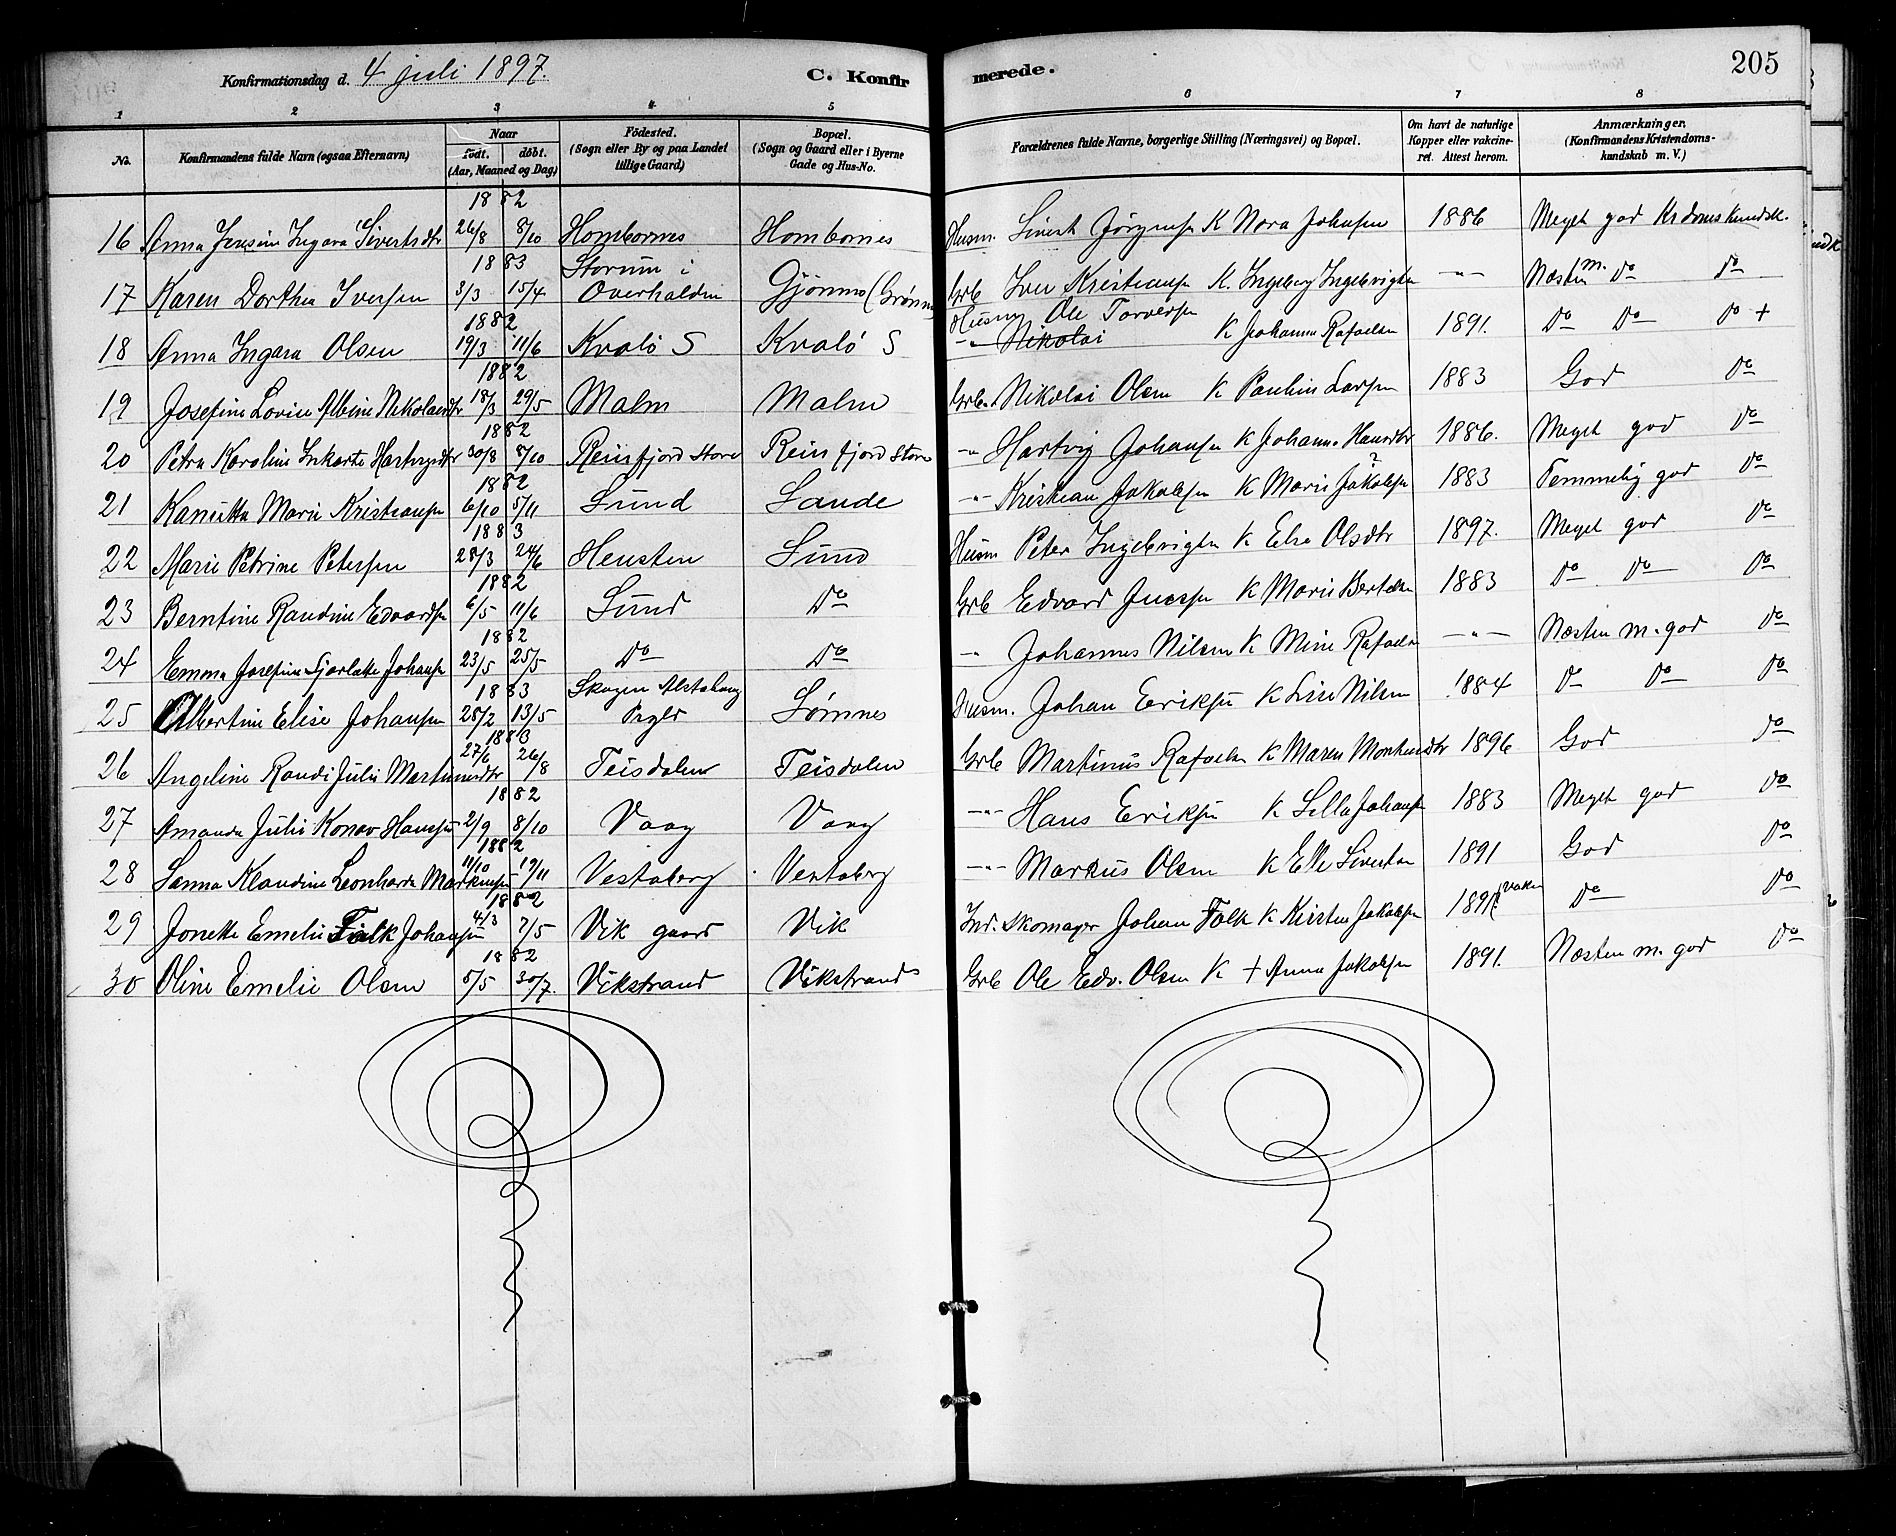 Konfirmationsdag d. 4 juli 1897. C. Konfirmerede. 205
1 2 3 4 5 6 7 8
No. Konfirmandens fulde Navn (ogsaa Efternavn) Naar født. døbt. (Aar, Maaned og Dag) Fødested. (Sogn eller By og paa Landet tillige Gaard) Bopæl. (Sogn og Gaard eller i Byerne Gade og Hus-No. Forældrenes fulde Navne, borgerlige Stilling (Næringsvei) og Bopæl. Om havt de naturlige Kopper eller vakcineret. Attest herom. Anmærkninger. (Konfirmandens Kristendomskundskab m. V.)
1882
16 Anna Jensine Ingara Sivertsdtr 26/8 8/10 Hombornes Hombornes Husm. Sivert Jørgensen K Nora Johnsen 1886 Meget god Krdomskundsk.
1883
17 Karen Dorthea Iversen 3/3 15/4 Storum i Overhalden Gjønnes (Grønn Grb Iver Kristiansen K. Ingeborg Ingebrigtsen -"- Næsten m. do do
1882
18 Anna Ingara Olsen 19/3 11/6 Kvalø S Kvalø S Husm Ole Torversen -"- Nikolai K Johanna Rafaelsen 1891. do do do +
1882
19 Josefine Lovise Albine Nikolaisdtr 18/3 29/5 Malm Malm Grb. Nikolai Olsen K Pauline Larsen 1883 God do
1882
20 Petra Karoline Hartvigsdtr 30/8 8/10 Reinsfjord Store Reinsfjord Store -"- Hartvig Johansen K Johanna Hansdtr 1886. Meget god do
1882
21 Kanutta Marie Kristiansen 6/10 5/11 Lund Lande -"- Kristian Jakobsen K Marie Jakobsen 1883 Temmelig god do
1883
22 Marie Petrine Petersen 28/3 24/6 Hensten Lund Husm Peter Ingebrigtsen K Else Olsdtr 1897. Meget god do
1882
23 Berntine Randine Edvardsen 6/5 11/6 Lund do Grb Edvard Jensen K Marie Bertelsen 1883 do do do
1882
24 Emma Josefine Johansen 23/5 25/5 do do -"- Johannes Nilsen K Mine Rafaelsen -"- Næsten m. god do
1883
25 Albertine Elise Johansen 28/2 13/5 Skogen Alstahaug Prgld Sømnes Husm. Johan Eriksen K Lise Nilsen 1884 do do do
1883
26 Angeline Randi Julie Martinusdtr 27/6 26/8 Teisdalen Teisdalen Grb Martinus Rafaelsen K Maren Monsendtr 1896 God do
1882
27 Amanda Julie Konow Hansen 2/9 8/10 Vaag Vaag -"- Hans Eriksen K Lella Johansen 1883 Meget god do
1882
28 Sanna Klaudine Leonharda Markussen 11/10 19/11 Vestaberg Vestaberg -"- Markus Olsen K Elle Sivertsen 1891 God do
1882
29 Jonette Emelie Falk Johansen 4/3 7/5 Vik gaard Vik Ind. Skomager Johan Falk K Kirsten Jakobsen 1891 do do
1882
30 Oline Emelie Olsen 5/5 30/7. Vikstrand Vikstrand Grb Ole Edv. Olsen K + Anna Jakobsen 1891. Næsten m. god do